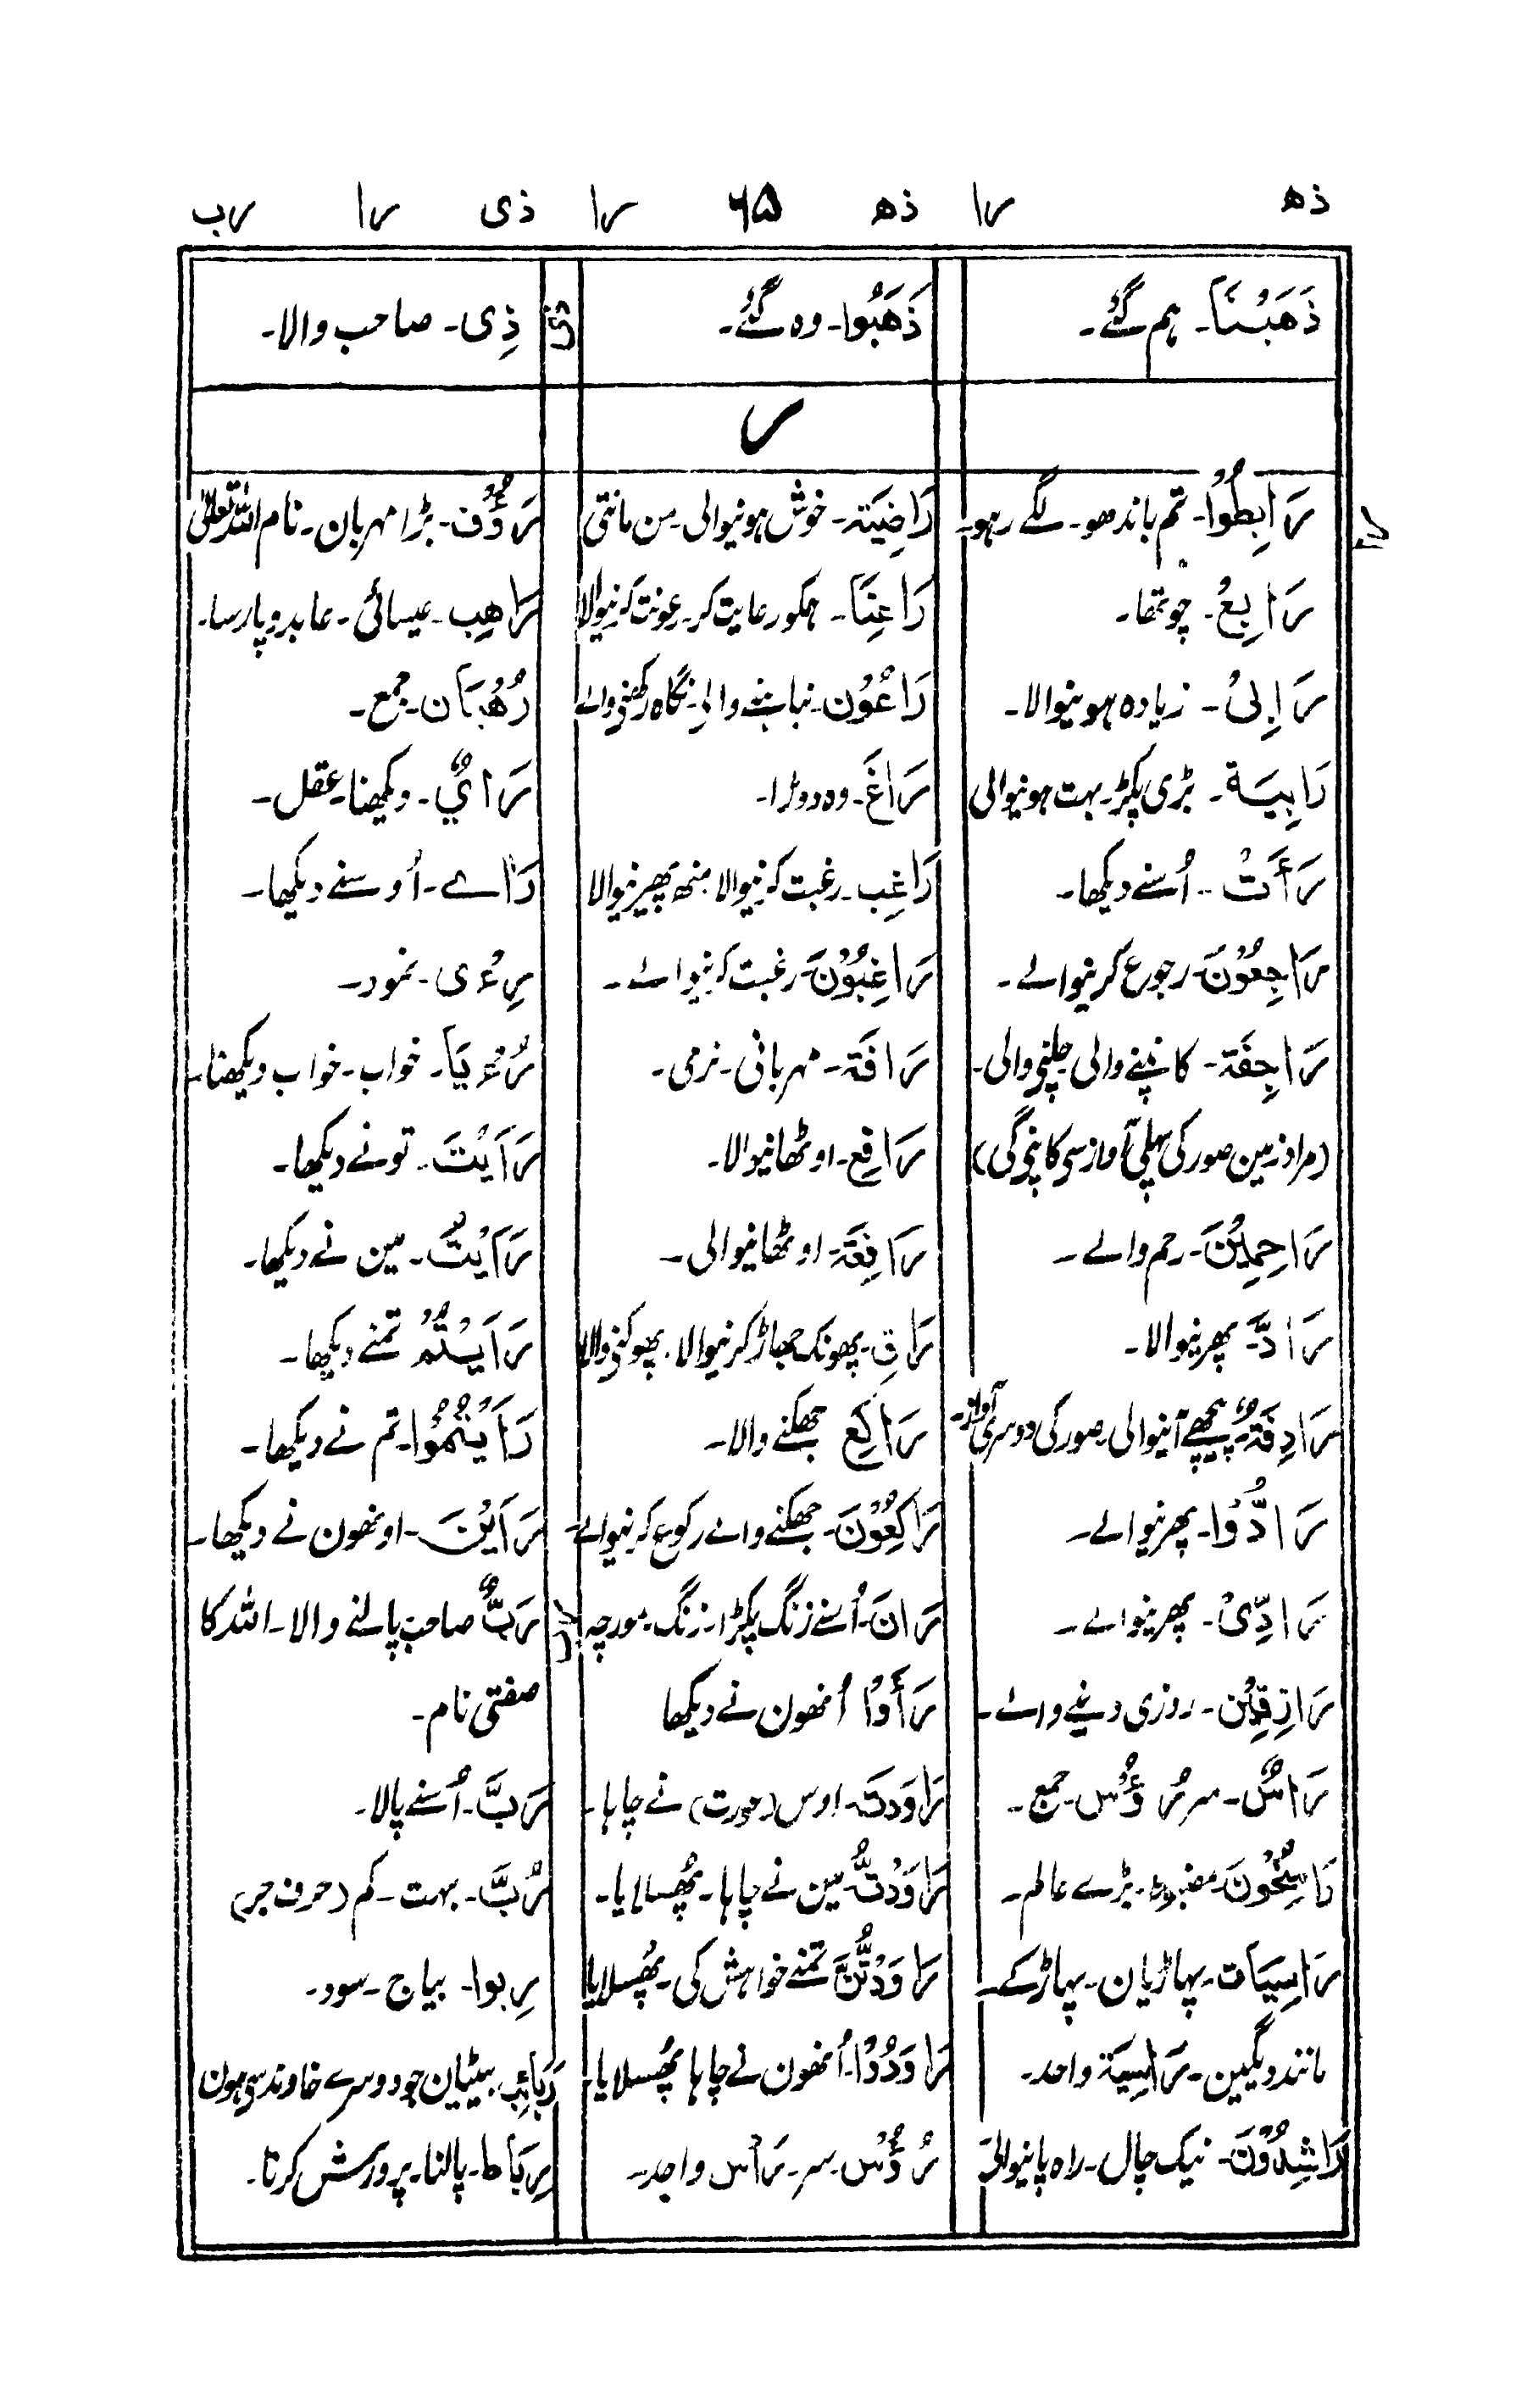 ذھ را ذھ ۶۵ را ذی را رب
ذَھَبْنَا۔ ہم گئے۔
ذَھَبُوا۔ وہ گئے۔
ذی
ذِی۔ صاحب والا۔
ر
را
رَابِطُوْا۔ تم باندھو۔ لگے رہو۔
رَابِعُ۔ چوتھا۔
رَابِیْ۔ زیادہ ہونیوالا۔
رَابِیَة۔ بڑی پکڑ۔ بہت ہونیوالی
رَأَتْ۔ اُسنے دیکھا۔
رَاجِعُوْنَ۔ رجوع کرنیوالے۔
رَاجِفَة۔ کانپنے والی۔ ہلنے والی۔
(مراد زمین صور کی پہلی آواز سی کانپی گی)
رَاحِمِیْنَ۔ رحم والے۔
رَادَّ۔ پھرنیوالا۔
رَادِفَةٌ۔ پیچھے آنیوالی۔ صور کی دوسری آواز۔
رَادُّوْا۔ پھرنیوالے۔
رَادِّیْ۔ پھرنیوالے۔
رَازِقِیْن۔ روزی دینے والے۔
رَاسٌ۔ سر رُؤُس۔ جمع۔
رَاسِخُوْنَ۔ مضبوط۔ بڑے عالم۔
رَاسِیَات۔ پہاڑیان۔ پہاڑ کے۔
مانند دیگین۔ رَاسِیَة واحد۔
رَاشِدُوْنَ۔ نیک چال۔ راہ پانیوالے
رَاضِیَة۔ خوش ہونیوالی۔ من مانتی
رَاعِنَا۔ ہمکو رعایت کر۔ رعونت کرنیوالا
رَاعُوْن۔ نباہنے والی۔ نگاہ رکھنی والے
رَاغَ۔ وہ دوڑا۔
رَاغِب۔ رغبت کرنیوالا منھ پھیرنیوالا
رَاغِبُوْنَ۔ رغبت کرنیوالے۔
رَافَة۔ مہربانی۔ نرمی۔
رَافِع۔ اوٹھانیوالا۔
رَافِعَة۔ اوٹھانیوالی۔
رَاقِ۔ پھونک جھاڑ کرنیوالا۔ پھوکنی والا
رَاکِع جھکنے والا۔
رَاکِعُوْنَ۔ جھکنے والے رکوع کرنیوالے۔
رَانَ۔ اُسنے زنگ پکڑا۔ زنگ۔ مورچہ
رَأَوْا اُنھون نے دیکھا
رَاوَدَتْ۔ اوس (عورت) نے چاہا۔
رَاوَدْتُّ۔ مین نے چاہا۔ پُھسلایا۔
رَاوَدْتُّنَّ تمنے خواہش کی۔ پُھسلایا
رَاوَدُوْا۔ اُنھون نے چاہا پُھسلایا۔
رُؤُس۔ سر۔ رَاْس واحد۔
رَؤُف۔ بڑا مہربان۔ نام اللہ تعالی
رَاھِب۔ عیسائی۔ عابد و پارسا۔
رُھْبَان۔ جمع۔
رَایٌ۔ دیکھنا۔ عقل۔
رَاٰے۔ اُوسنے دیکھا۔
رِءْی۔ نمود۔
رُءْیَا۔ خواب۔ خواب دیکھنا۔
رَاَیْتَ۔ تونے دیکھا۔
رَاَیْتُ۔ مین نے دیکھا۔
رَاَیْتُمْ تمنے دیکھا۔
رَاَیْتُمُوْا۔ تم نے دیکھا۔
رَاَیْنَ۔ اونھون نے دیکھا۔
رب
رَبٌّ صاحب پالنے والا۔ اللہ کا
صفتی نام۔
رَبَّ۔ اُسنے پالا۔
رُبَّ۔ بہت۔ کم (حرف جر)
رِبوا۔ بیاج۔ سود۔
رَبَائِب بیٹیان جو دوسرے خاوند سی ہون
رِبَاط۔ پالنا۔ پرورش کرنا۔